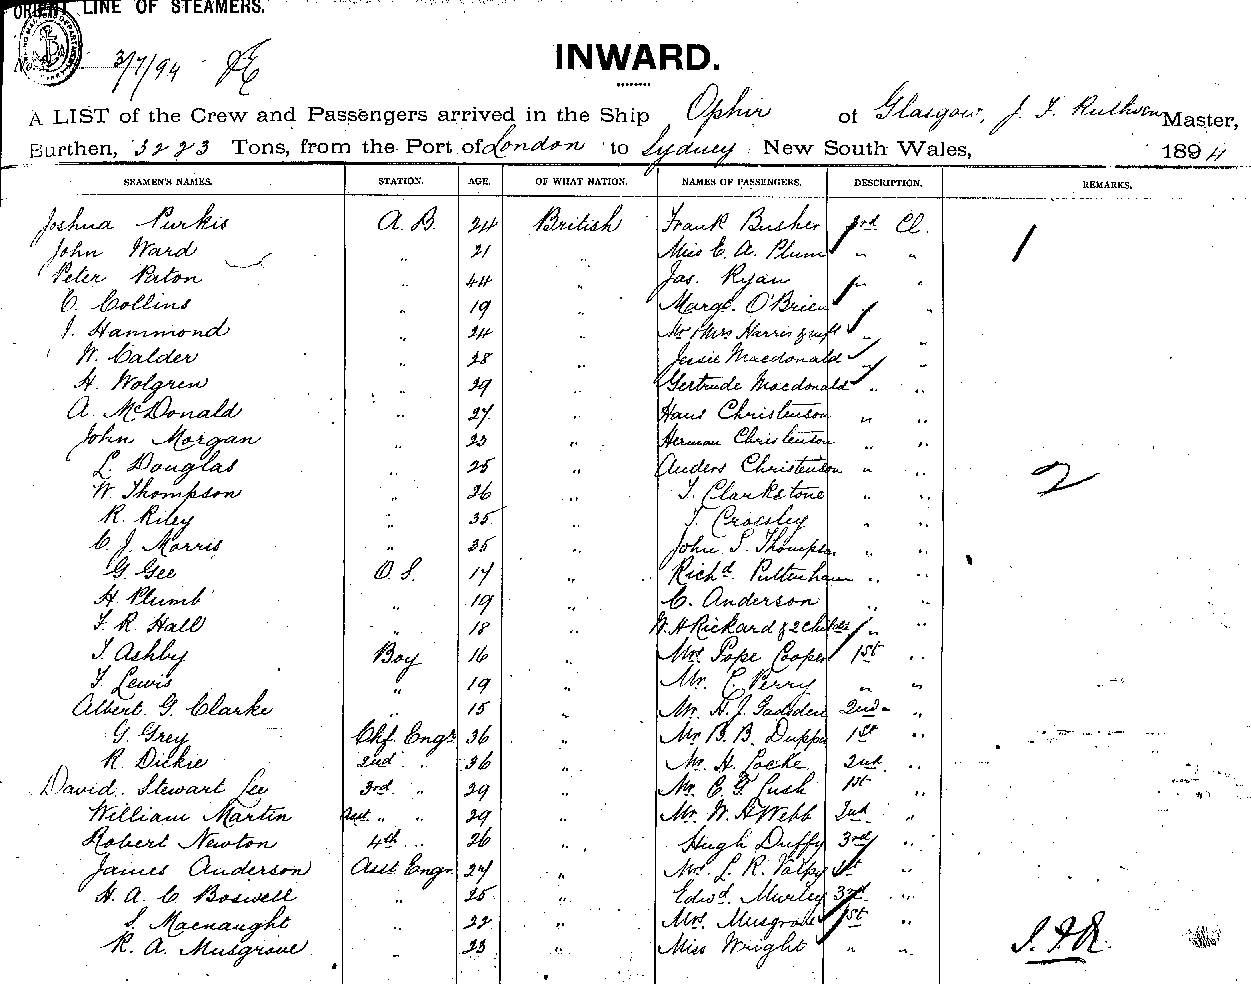 ORIENT LINE OF STEAMERS.
3/7/94
INWARD.
A LIST of the Crew and Passengers arrived in the Ship Ophir of Glasgow, J. F. Ruthven Master,
Burthen, 3223 Tons, from the Port of London to Sydney New South Wales, 1894
SEAMEN'S NAMES. STATION. AGE. OF WHAT NATION. NAMES OF PASSENGERS. DESCRIPTION. REMARKS.
Joshua Purkis A.B. 24 British Frank Busher 3rd Cl. 1
John Ward " 21 " Miss E. A. Plum " "
Peter Paton " 44 " Jas. Ryan " "
C. Collins " 19 " Margt. O'Brien "
J. Hammond " 24 " Mr & Mrs Harris & inft " "
W. Calder " 28 " Jessie Macdonald " "
H. Wolgren " 29 " Gertrude Macdonald " "
A. McDonald " 27 " Hans Christenson " "
John Morgan " 23 " Herman Christenson " "
L. Douglas " 25 " Anders Christenson " " 2
W. Thompson " 26 " T. Clarkstone " "
R. Riley " 35 " T. Crossley " "
C. J. Morris " 35 " John S. Thompson " "
G. Gee O.S. 17 " Richd. Puttenham " "
H Plumb " 19 " C. Anderson " "
F. R. Hall " 18 " W. H Rickard & 2 childn " "
T. Ashby Boy 16 " Mrs Pope Cooper 1st "
F. Lewis " 19 " Mr. C. Perry " "
Albert G. Clarke " 15 " Mr. H. J. Gadsden 2nd "
G. Grey Chf Engr 36 " Mr B. B. Duppa 1st "
R. Dickie 2nd " 36 " Mr. H. Locke 2nd "
David Stewart Lee 3rd " 29 " Mr. C. G. Lush 1st "
William Martin Asst " " 29 " Mr. W. H Webb 2nd "
Robert Newton 4th " 26 " Hugh Duffy 3rd "
James Anderson Asst Engr 27 " Mr. L. R. Valpy 1st "
H. A. C Boswell " 25 " Edwd. Murley 3rd "
S. Macnaught " 22 " Mrs. Musgrove 1st "
R. A. Musgrove " 23 " Miss Wright " "
J.F.R.